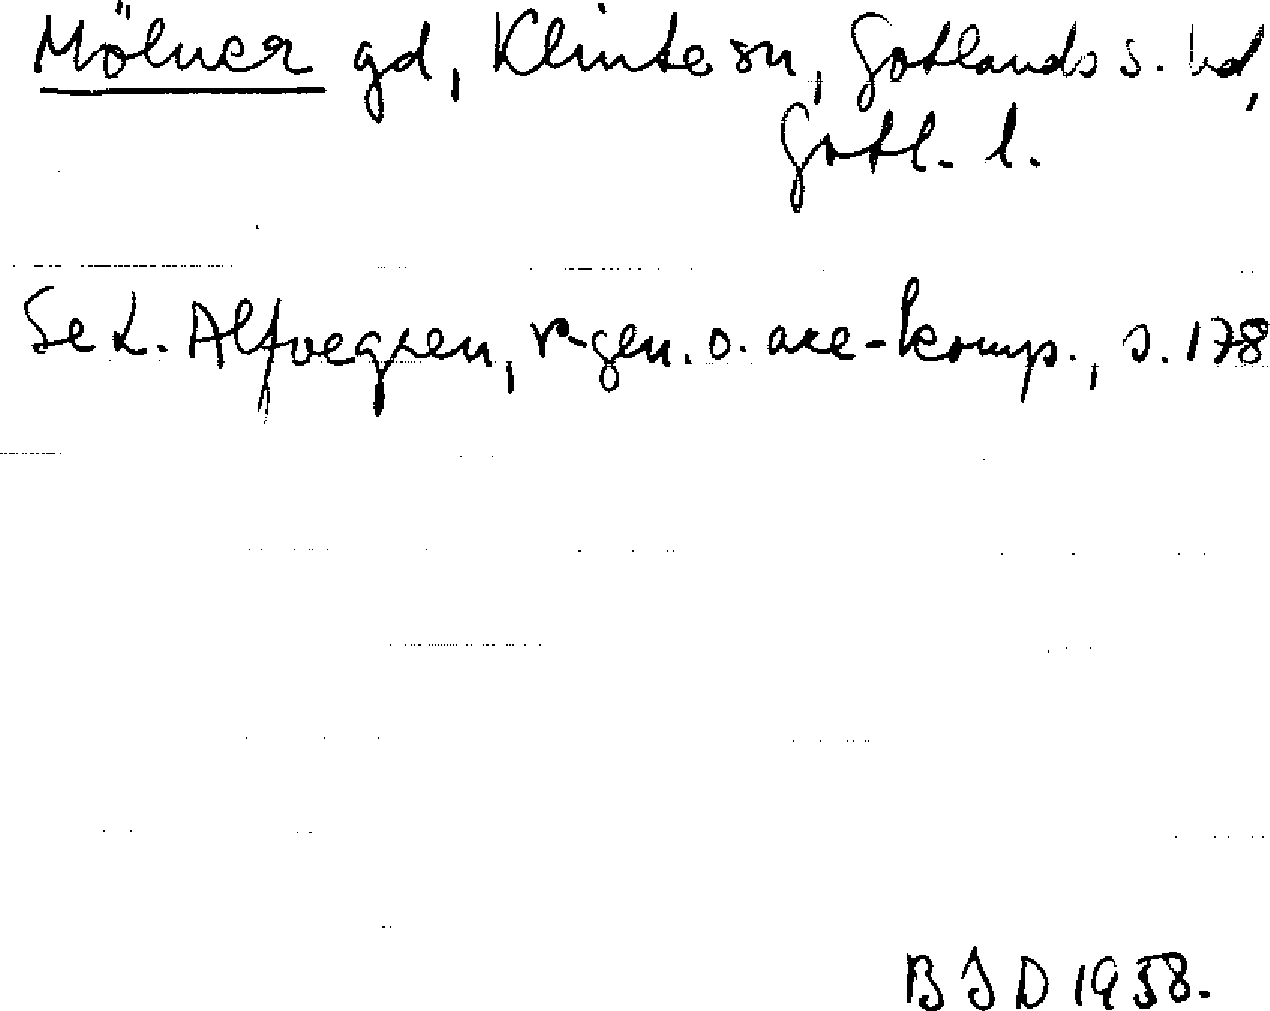 Mölner gd, Klinte sn, Gotlands s. hd,
Gotl. l.
Se L. Alfvegren, r-gen. o. are-komp., s. 178
B J D 1958.